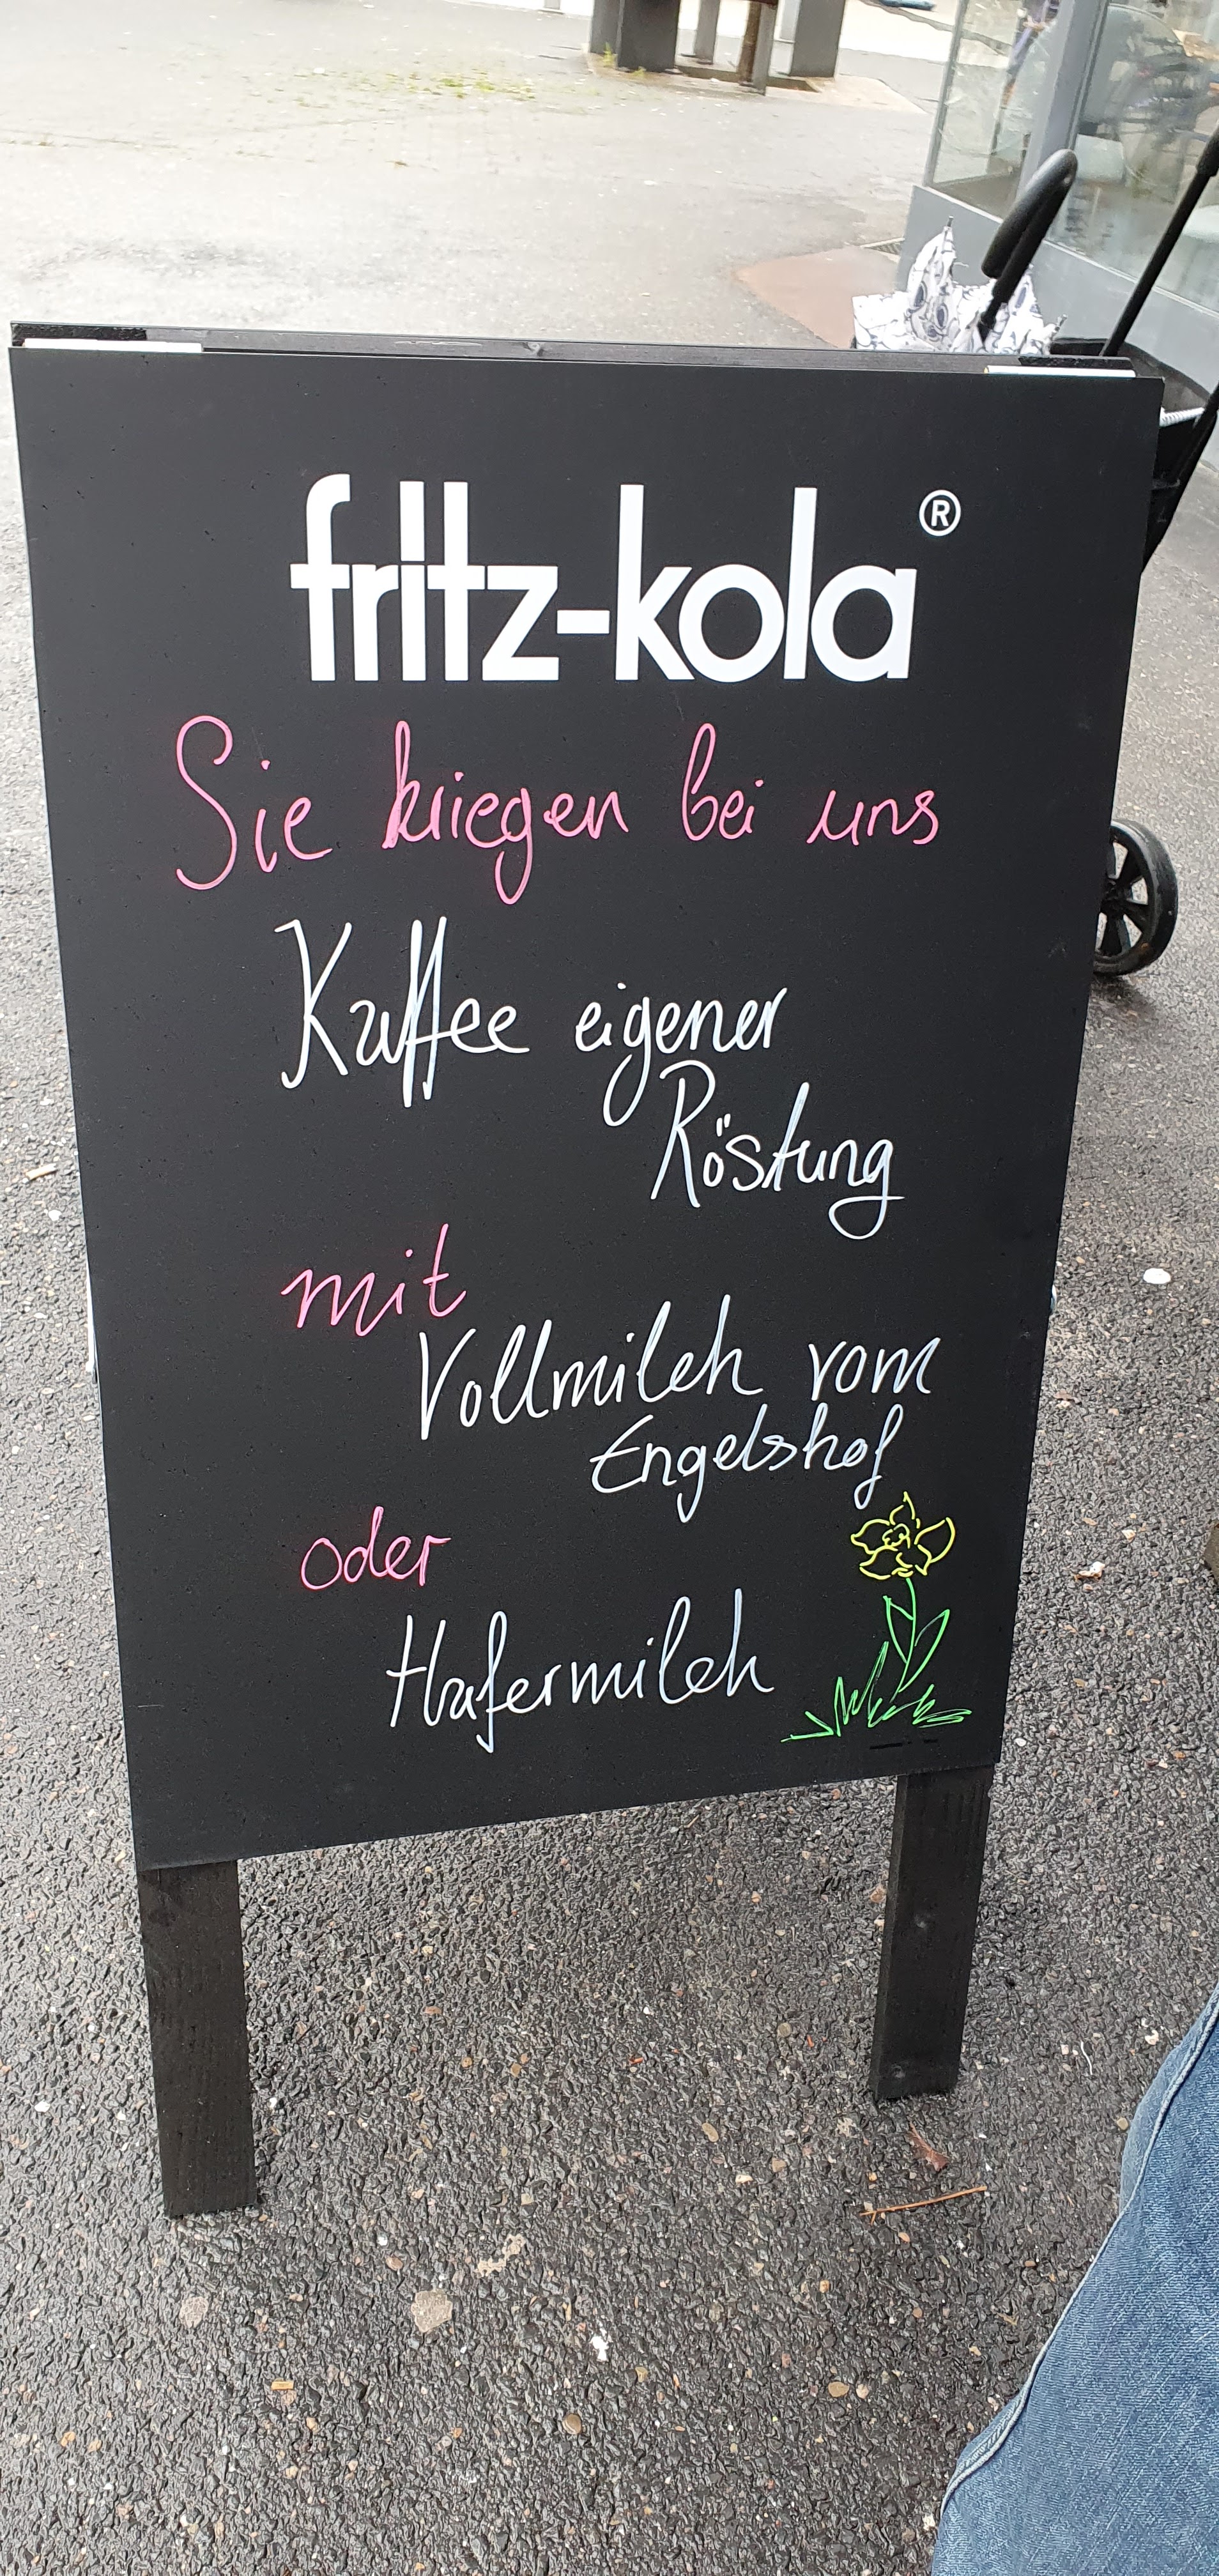 fritz-kola®
Sie kriegen bei uns
Kaffee eigener
Röstung
mit
Vollmilch vom
Engelshof
oder
Hafermilch